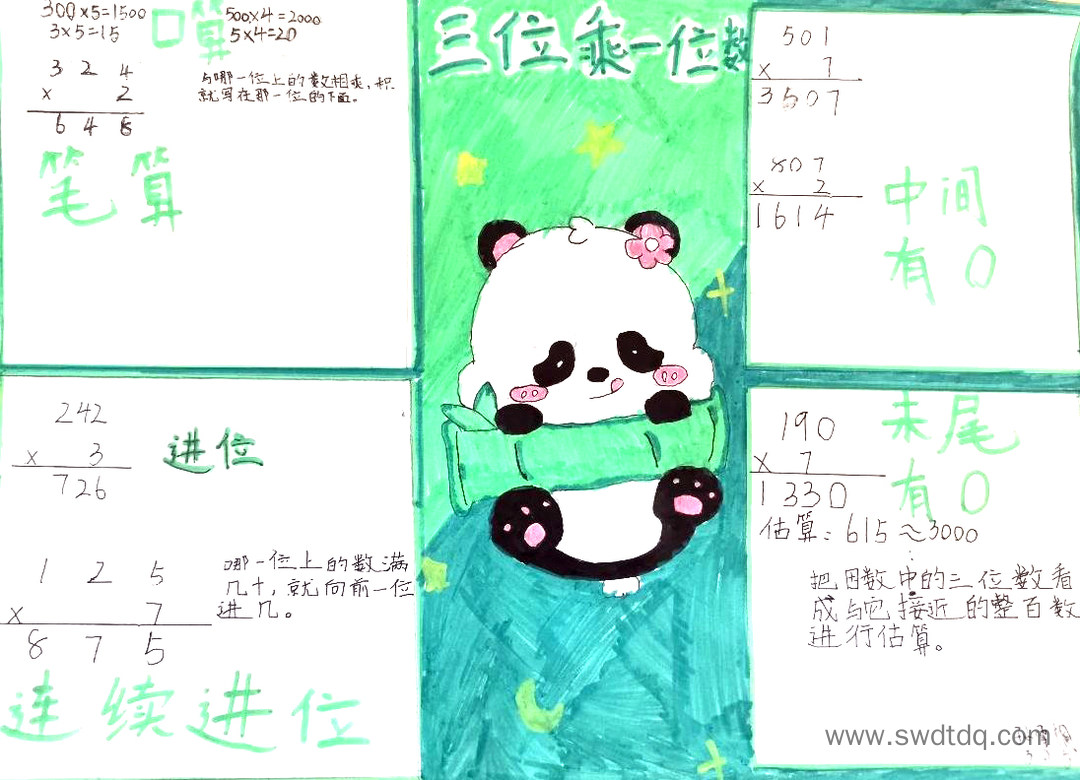 三位乘一位数
300×5=1500
3×5=15
口算
500×4=2000
5×4=20
3 2 4
× 2
6 4 8
与哪一位上的数相乘,积
就写在那一位的下面。
笔算
501
× 7
3507
807
× 2
1614
中间
有 0
242
× 3
726
进位
1 2 5
× 7
8 7 5
哪一位上的数满
几十,就向前一位
进几。
连续进位
190
× 7
1330
末尾
有 0
估算:615≈3000
把因数中的三位数看
成与它接近的整百数
进行估算。
www.swdtdq.com